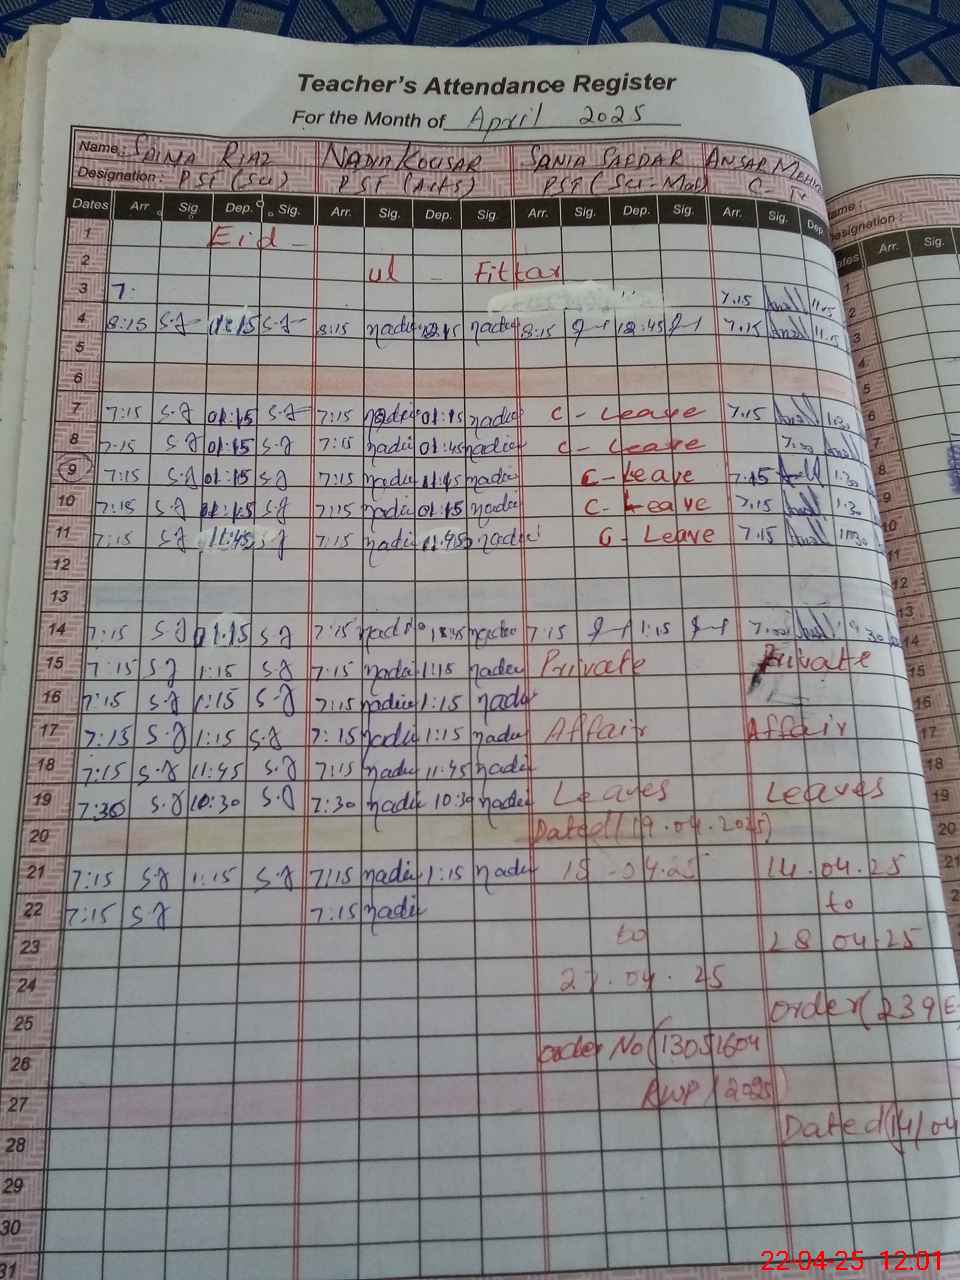 Teacher's Attendance Register
For the Month of April 2025
Name: SAIMA RIAZ NADIA KOUSAR SANIA SARDAR ANSAR
Designation: PST (Sci) PST (Arts) PST (Sci-Mat)
Dates Arr. Sig. Dep. Sig. Arr. Sig. Dep. Sig. Arr. Sig. Dep. Sig. Arr. Sig. Dep.
1 Eid -
2 ul - Fittar
3 7: 7.15 11.15
4 8:15 S.J 8:15 nadia 12:45 nadia 8:15 12:45 7.15 11.15
5
6
7 7:15 S.J 01:15 S.J 7:15 nadia 01:15 nadia C - Leave 7.15 1.30
8 7:15 S.J 01:15 S.J 7:15 nadia 01:45 nadia C - Leave 7.30
9 7:15 S.J 01:15 S.J 7:15 nadia nadia C - Leave 7.15 1.30
10 7:15 S.J S.J 7:15 nadia 01:15 nadia C - Leave 7.15 1.30
11 7:15 S.J 11:45 S.J 7:15 nadia 11:45 nadia C - Leave 7.15
12
13
14 7:15 S.J 01:15 S.J 7:15 nadia nadia 7:15 1:15
15 7:15 S.J 1:15 S.J 7:15 nadia 1:15 nadia Private Private
16 7:15 S.J 1:15 S.J 7:15 nadia 1:15 nadia
17 7:15 S.J 1:15 S.J 7:15 nadia 1:15 nadia Affair Affair
18 7:15 S.J 11:45 S.J 7:15 nadia 11:45 nadia
19 7:30 S.J 10:30 S.J 7:30 nadia 10:30 nadia Leaves Leaves
20 Dated (19.04.2025)
21 7:15 S.J 1:15 S.J 7:15 nadia 1:15 nadia 15-04-25 14.04.25
22 7:15 S.J 7:15 nadia to
23 to 28 04.25
24 27.04.25
25 order (239 E
26 order No (13051604
27 RWP / 2025)
28 Dated (14/04
29
30
31
Name:
Designation:
Dates Arr. Sig.
22-04-25 12:01